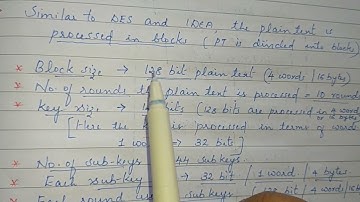 Similar to DES and IDEA the plain text is
processed in blocks (PT is divided into blocks)
* Block size → 128 bit plain text (4 words / 16 bytes)
* No. of rounds the plain text is processed = 10 rounds
* Key size → bits (128 bits are processed in 4 words or 16 bytes
[Here the is processed in terms of words
1 word → 32 bits]
* No. of sub-keys 44 sub keys
* Each sub-key → 32 bit / 1 word / 4 bytes